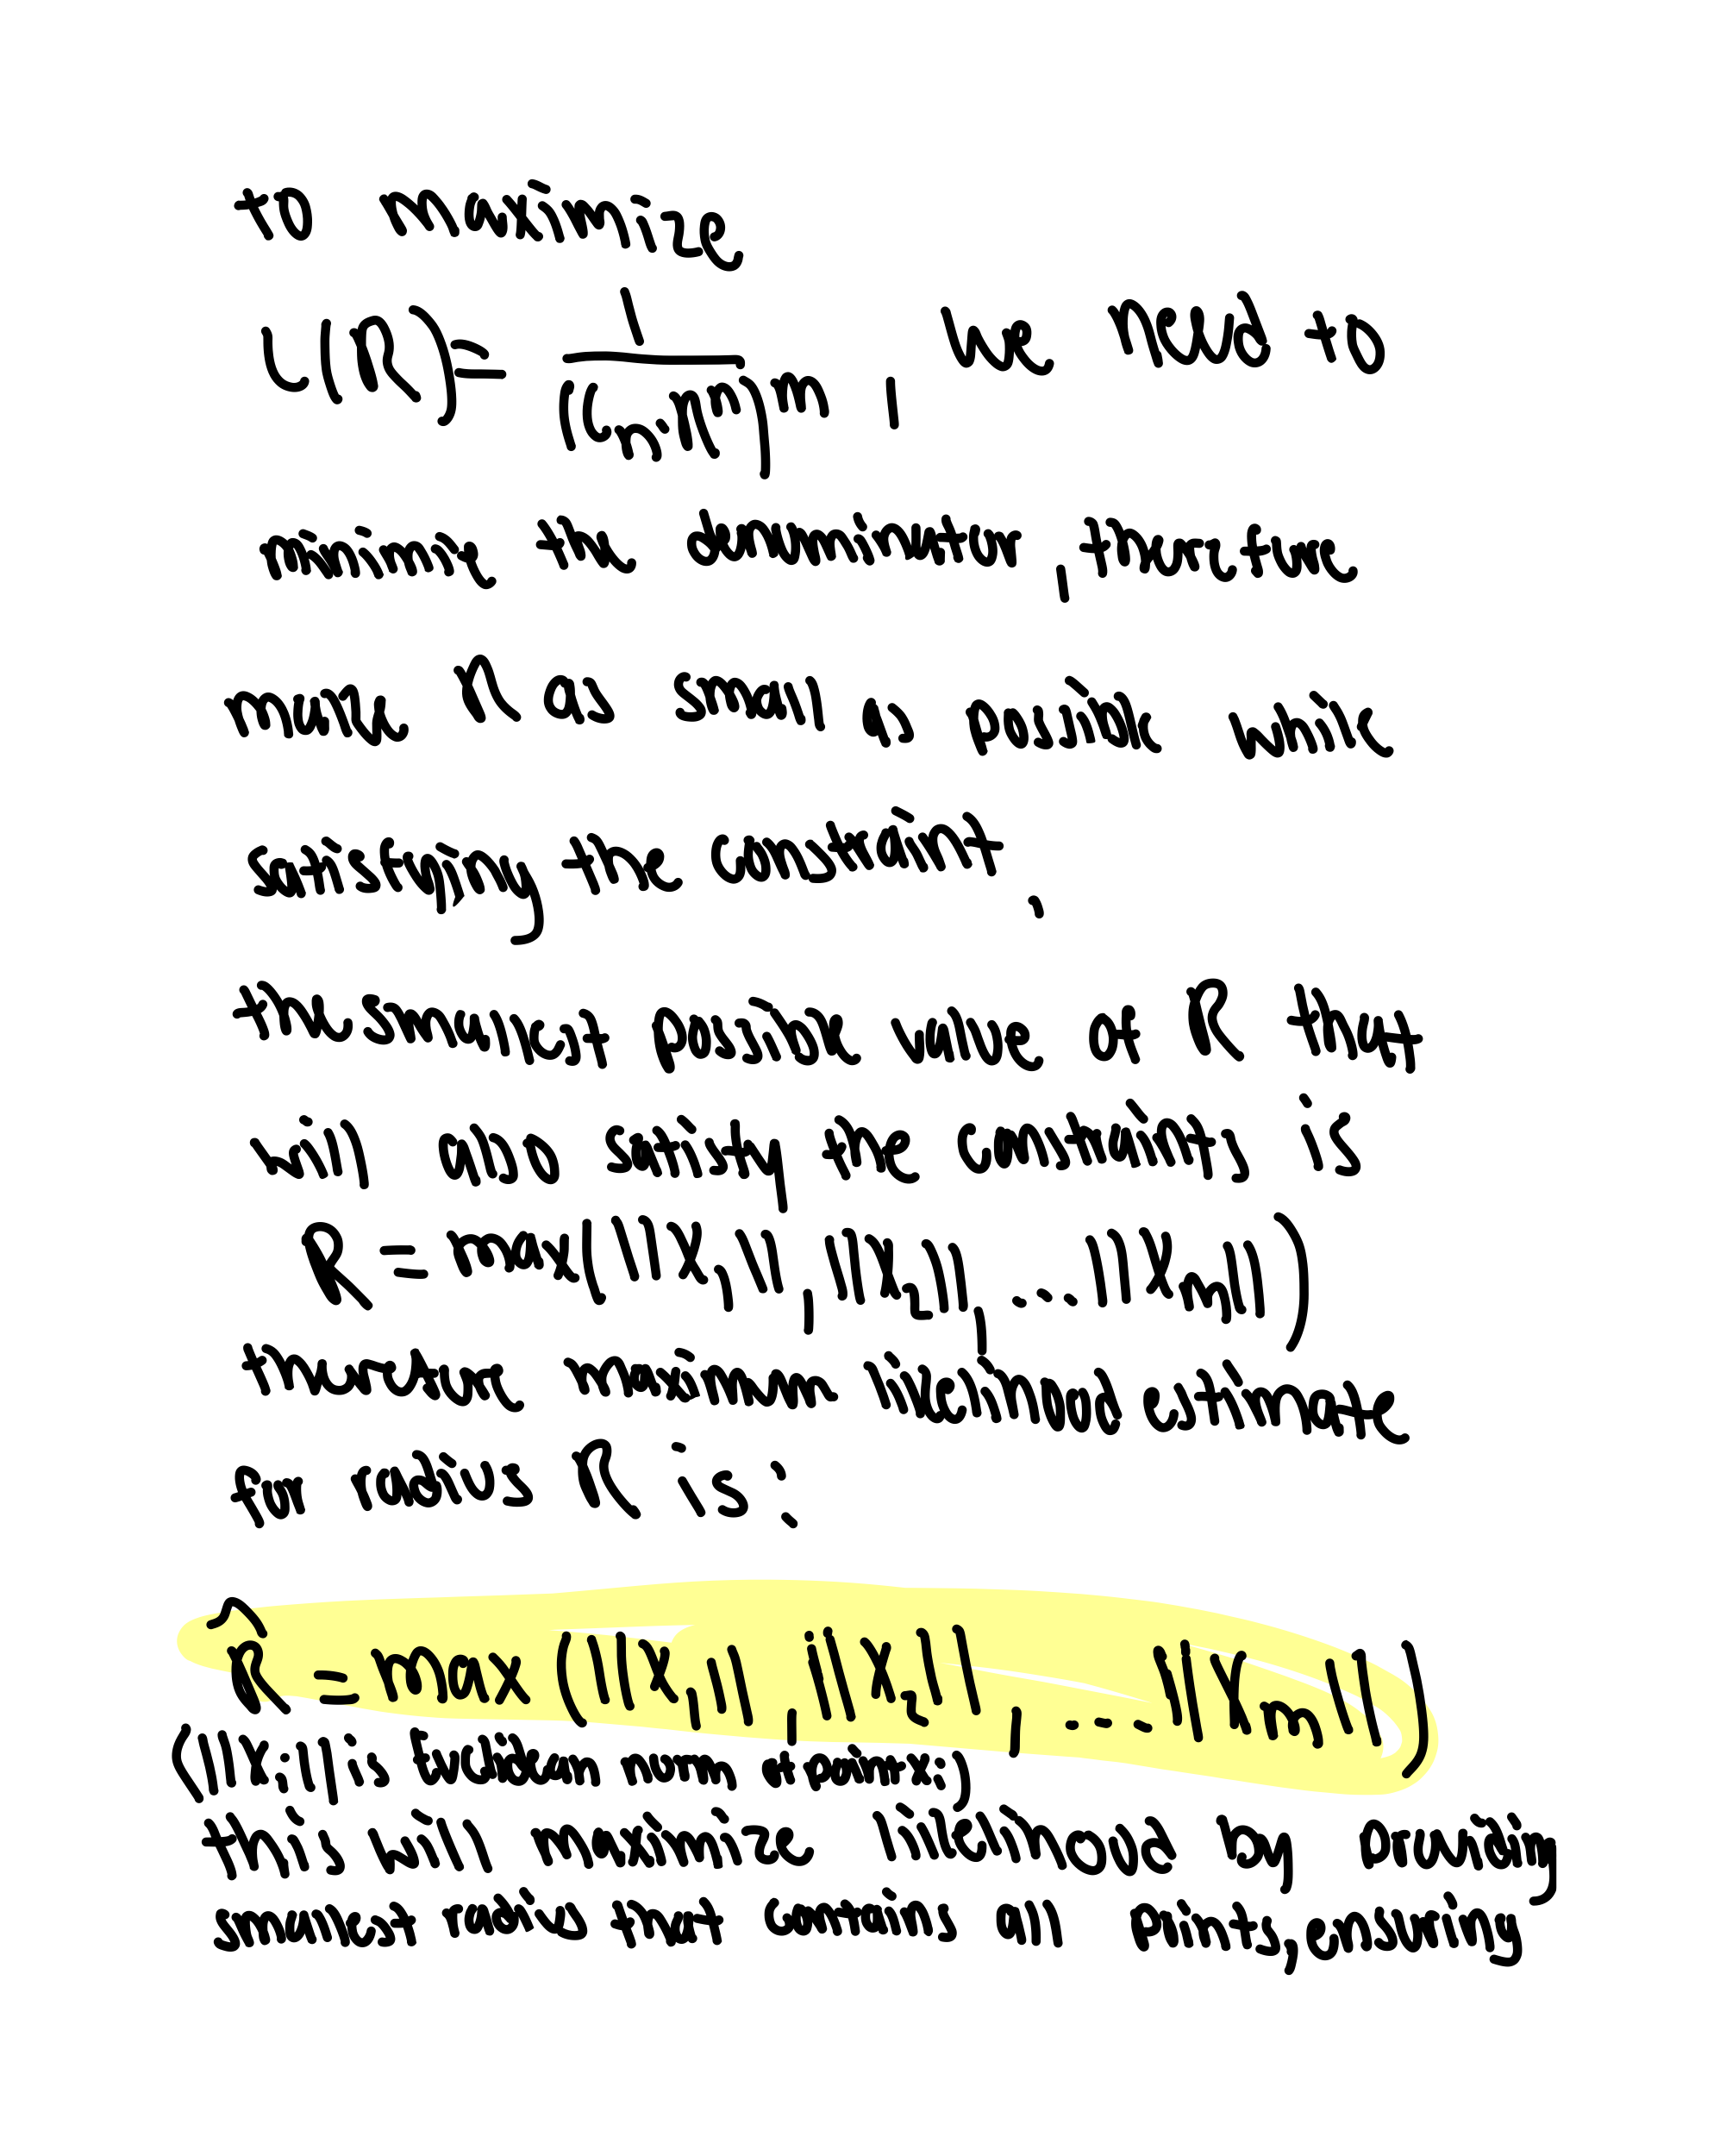 to maximize
L(R) = 1 / (Cn·Rⁿ)ᵐ , we need to
minimize the denominator, therefore
make R as small as possible while
satisfying the constraint.
the smallest possible value of R that
will also satisfy the constraints is
R = max(||x₁||, ||x₂||, ... ||xm||)
therefore maximum likelihood estimate
for radius R is:
R̂ = max(||x₁||, ||x₂||, ... ||xm||)
(||xi|| is Euclidean norm of point xi)
this will maximize likelihood by providing
smallest radius that contains all points, ensuring